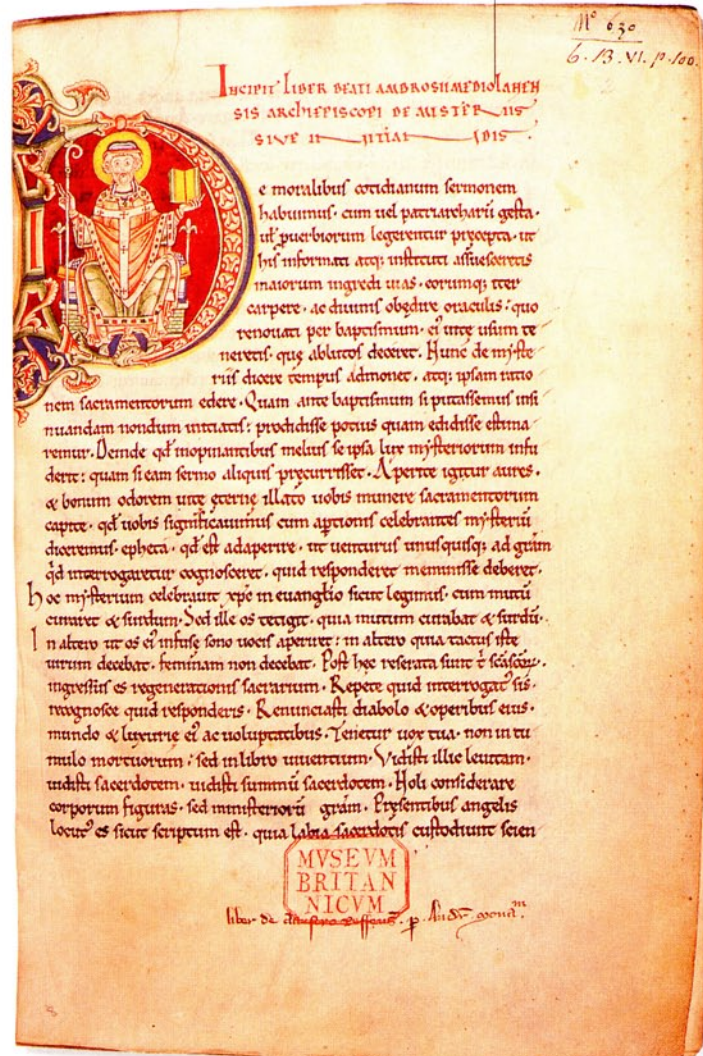 Mº 630
6. B. VI. p. 100.
INCIPIT LIBER BEATI AMBROSII MEDIOLANEN
SIS ARCHIEPISCOPI DE MISTERIIS
SIVE INITIANDIS
e moralibus cotidianum sermonem
habuimus. cum uel patriarcharū gesta.
ut puerbiorum legerentur precepta. ut
his informati atq; instituti assuesceretis
maiorum ingredi uias. eorumq; iter
carpere. ac diuinis obędire oraculis: quo
renouati per baptismum. ei uitę usum te
neretis. quę ablutos deceret. Hunc de myste
riis dicere tempus admonet. atq; ipsam ratio
nem sacramentorum edere. Quam ante baptismum si putassemus insi
nuandam nondum initiatis: prodidisse potius quam edidisse estima
remur. Deinde qd inopinantibus melius se ipsa lux mysteriorum infu
derit: quam si eam sermo aliquis precurrisset. Aperite igitur aures.
& bonum odorem uitę ęternę illato uobis munere sacramentorum
capite. qd uobis significauimus cum aptionis celebrantes mysteriū
diceremus. epheta. qd est adaperire. ut uenturus unusquisq; ad grām
qd interrogaretur cognosceret. quid responderet meminisse deberet.
Hoc mysterium celebrauit xpc in euanglio sicut legimus. cum mutū
curaret & surdum. Sed ille os tetigit. quia mutum curabat & surdū.
In altero ut os ei infuse sono uocis aperiret: in altero quia tactus iste
uirum decebat. feminam non decebat. Post hec reserata sunt t scāscōꝝ.
ingressus es regenerationis sacrarium. Repete quid interrogat' sis.
recognosce quid responderis. Renunciasti diabolo & operibus eius.
mundo & luxurię ei ac uoluptatibus. Tenetur uox tua. non in tu
mulo mortuorum: sed in libro uiuentium. Vidisti illic leuitam.
uidisti sacerdotem. uidisti summū sacerdotem. Noli considerare
corporum figuras. sed ministeriorū grām. Presentibus angelis
locut' es sicut scriptum est. quia labia sacerdotis custodiunt scien
MVSEVM
BRITAN
NICVM
liber de claustro Roffensi. p.